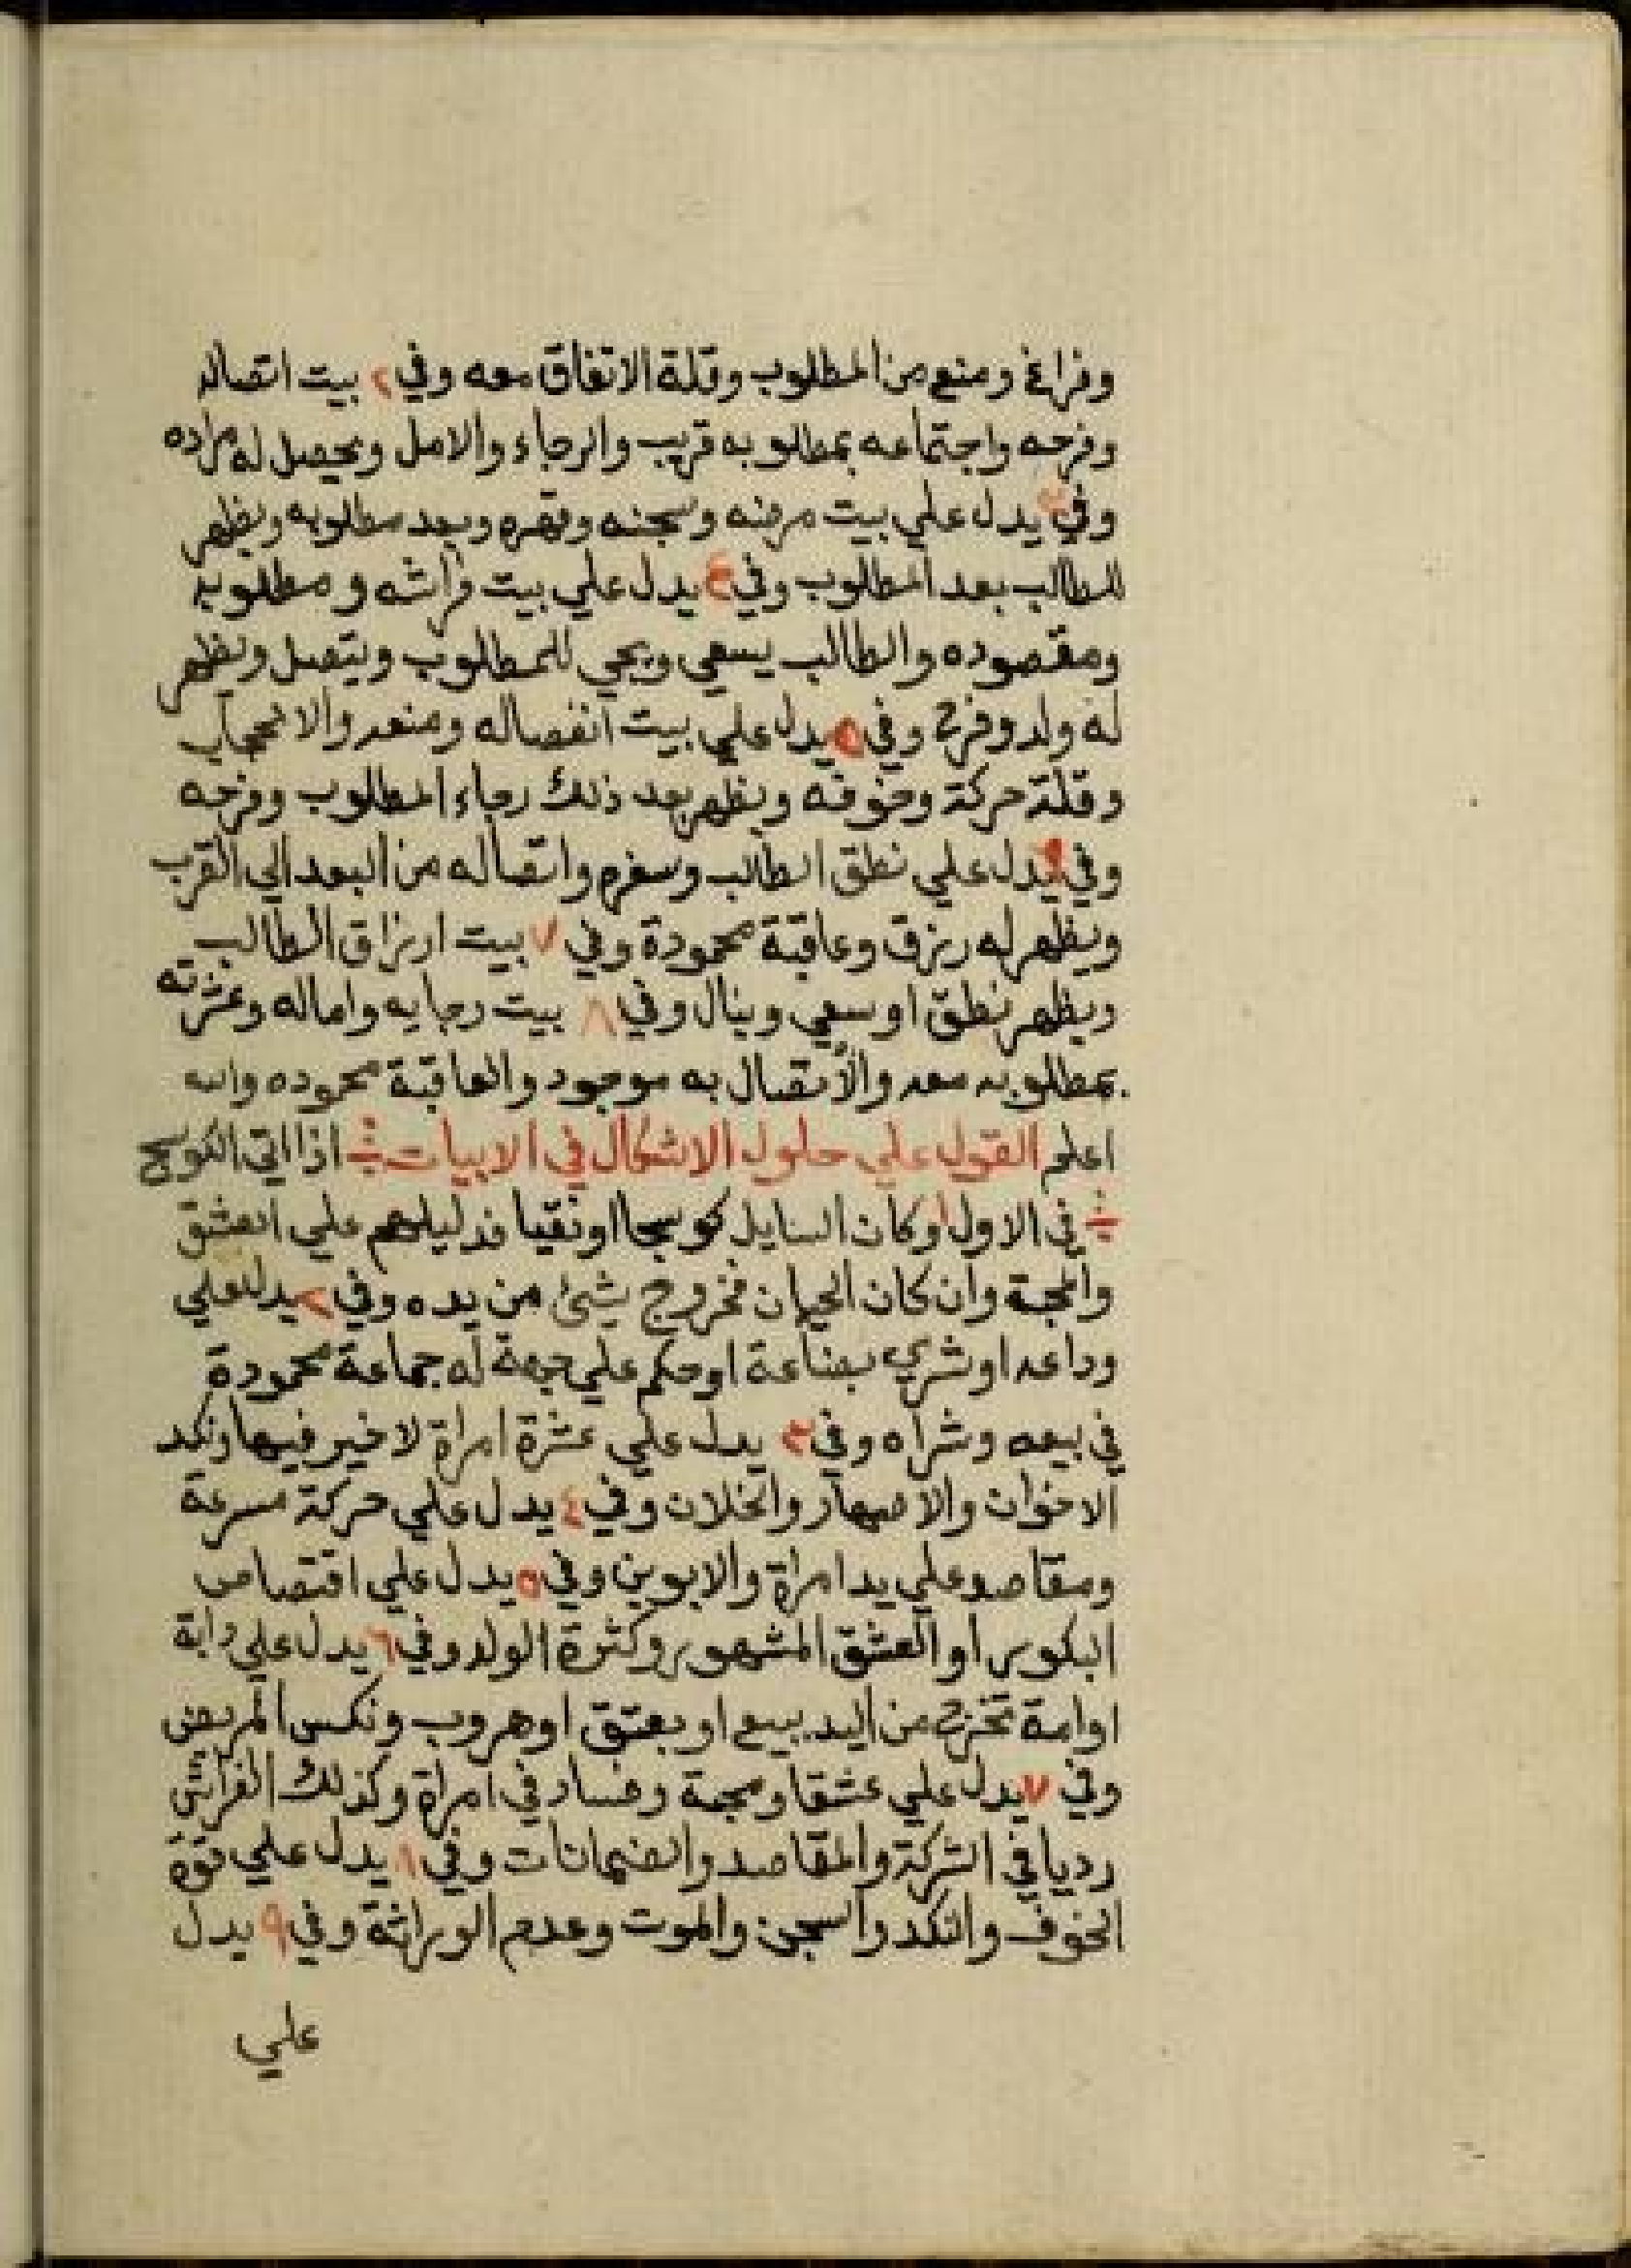 وفراغ ومنع من المطلوب وقلة الاتفاق معه وفي ٢ بيت اتصاله
وفرحه واجتماعه بمطلوبه قريب والرجاء والامل ويحصل له مراده
وفي ٣ يدل علي بيت مرضه وسجنه وقهره وبعد مطلوبه ويظهر
للطالب بعد المطلوب وفي ٤ يدل علي بيت فراشه ومطلوبه
ومقصوده والطالب يسعي ويجي للمطلوب ويتصل ويظهر
له ولد وفرح وفي ٥ يدل علي بيت انفصاله ومنعه والاحتجاب
وقلة حركة وخوفه ويظهر بعد ذلك رجاء المطلوب وفرحه
وفي ٦ يدل علي نطق الطالب وسفره واتصاله من البعد الي القرب
ويظهر له رزق وعاقبة محمودة وفي ٧ بيت ارزاق الطالب
ويظهر نطق او سعي وينال وفي ٨ بيت رجايه واماله وعشرته
بمطلوبه معه والاتصال به موجود والعاقبة محموده والله
اعلم القول علي حلول الاشكال في الابيات اذا اتي الكوسج
في الاول ١ وكان السايل كوسجا او نقيا فدليلهم علي العشق
والمحبة وان كان الحيان فخروج شئ من يده وفي ٢ يدل علي
وداعه او شري بضاعة او حكم علي جهة له جماعة محمودة
في بيعه وشراه وفي ٣ يدل علي عشرة امراة لا خير فيها ونكد
الاخوان والاصهار والخلان وفي ٤ يدل علي حركة مسرعة
ومقاصد علي يد امراة والابوين وفي ٥ يدل علي اقتصاص
البكور او العشق المشهور وكثرة الولد وفي ٦ يدل علي دابة
او امة تخرج من اليد ببيع او بعتق او هروب ونكس المريض
وفي ٧ يدل علي عشقا ومحبة وفساد في امراة وكذلك الفراش
رديا في الشركة والمقاصد والضمانات وفي ٨ يدل علي قوة
الخوف والنكد والسجن والموت وعدم الوراثة وفي ٩ يدل
علي